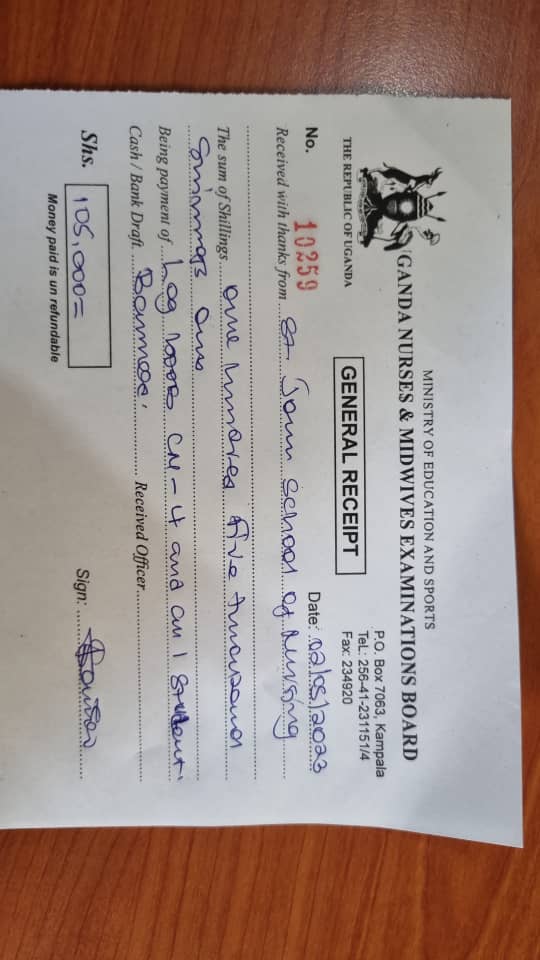 MINISTRY OF EDUCATION AND SPORTS
UGANDA NURSES & MIDWIVES EXAMINATIONS BOARD
THE REPUBLIC OF UGANDA
P.O. Box 7063, Kampala
Tel: 256-41-231151/4
Fax: 234920
GENERAL RECEIPT
No. 10259 Date: 02/05/2023
Received with thanks from St John School of Nursing
The sum of Shillings one hundred five thousand
shillings only
Being payment of Log books CN - 4 and CM 1 student
Cash / Bank Draft Received Officer
Shs. 105,000= Sign:
Money paid is un refundable